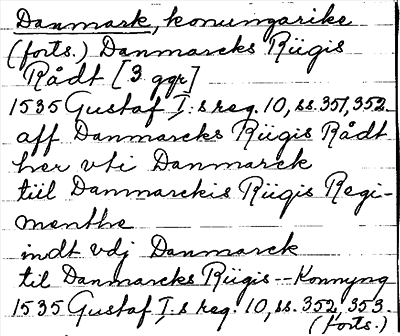 Danmark, konungarike
(forts.) Danmarcks Riigis
Rådt [3 ggr]
1535 Gustaf I:s reg. 10, ss. 351, 352.
aff Danmarcks Riigis Rådt
her vti Danmarck
tiil Danmarckis Riigis Regi-
menthe
indt vdj Danmarck
til Danmarcks Riigis -- Konnyng
1535 Gustaf I:s reg. 10, ss. 352, 353.
(forts.)